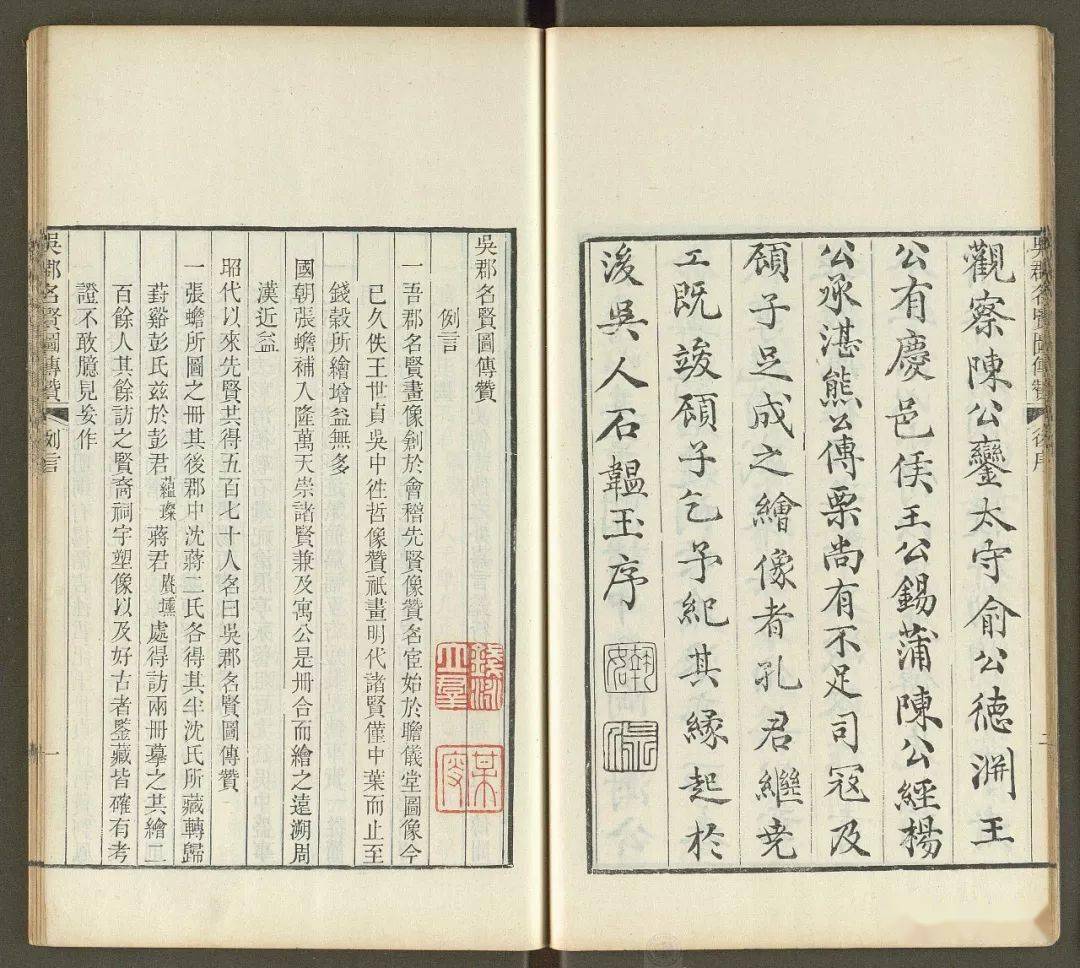 觀察陳公鑾太守俞公德淵王
公有慶邑侯王公錫蒲陳公經楊
公承湛熊公傳栗尚有不足司寇及
頋子足成之繪像者孔君繼堯
工既竣頋子乞予紀其緣起於
後吳人石韞玉序
吳郡名賢圖傳贊
後序
二
吳郡名賢圖傳贊
例言
一吾郡名賢畫像創於會稽先賢像贊名宦始於瞻儀堂圖像今
已久佚王世貞吳中徃哲像贊祇畫明代諸賢僅中葉而止至
錢榖所繪增益無多
國朝張蟾補入隆萬天崇諸賢兼及寓公是冊合而繪之遠溯周
漢近益
昭代以來先賢共得五百七十人名曰吳郡名賢圖傳贊
一張蟾所圖之冊其後郡中沈蔣二氏各得其半沈氏所藏轉歸
葑谿彭氏兹於彭君蘊璨蔣君賡壎處得訪兩冊摹之其繪二
百餘人其餘訪之賢裔祠宇塑像以及好古者鑒藏皆確有考
證不敢臆見妄作
吳郡名賢圖傳贊
例言
一